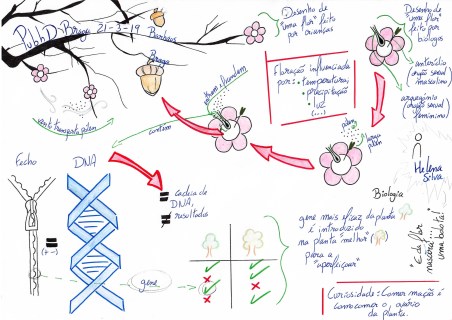 PubhD-Braga 21-3-19
Barbeus
Braga
Desenho de
"uma flor" feito
por crianças
Desenho de
"uma flor"
feito por
biólogos
anterídio
(órgão sexual
masculino)
arquegónio
(órgão sexual
feminino)
Floração influenciada
por: temperatura,
precipitação
luz
(...)
vento transporta pólen
contém
pólen
larga
pólen
Helena
Silva
Fecho
DNA
(+ -)
cadeia de
DNA,
resultados
gene
Biologia
gene mais eficaz da planta
é introduzido
na planta "melhor"
para a
"aperfeiçoar"
"E da flor
nascerá...
uma bolota!"
Curiosidade: Comer maçã é
como comer o ovário
da planta.